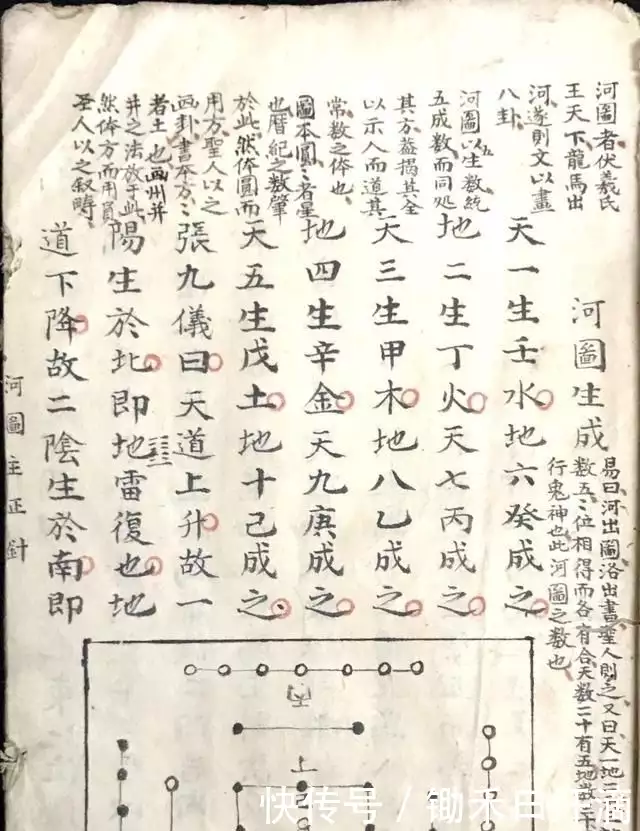 河圖者伏羲氏
王天下龍馬出
河遂則文以畫
八卦
河圖以五生數統
五成數而同処
其方蓋揭其全
以示人而道其
常數之体也
圖本圓〻者星
也曆紀之數肇
於此然体圓而
用方聖人以之
画卦書本方〻
者土也画州井
井之法放于此
然体方而用員
聖人以之叙疇
河圖生成
易曰河出圖洛出書聖人則之又曰天一地二
數五〻位相得而各有合天數二十有五地數
行鬼神也此河圖之數也
天一生壬水地六癸成之
地二生丁火天七丙成之
天三生甲木地八乙成之
地四生辛金天九庚成之
天五生戊土地十己成之
張九儀曰天道上升故一
陽生於北即地雷復也地
道下降故二陰生於南即
河圖主正針
上
快传号/锄禾日 滴